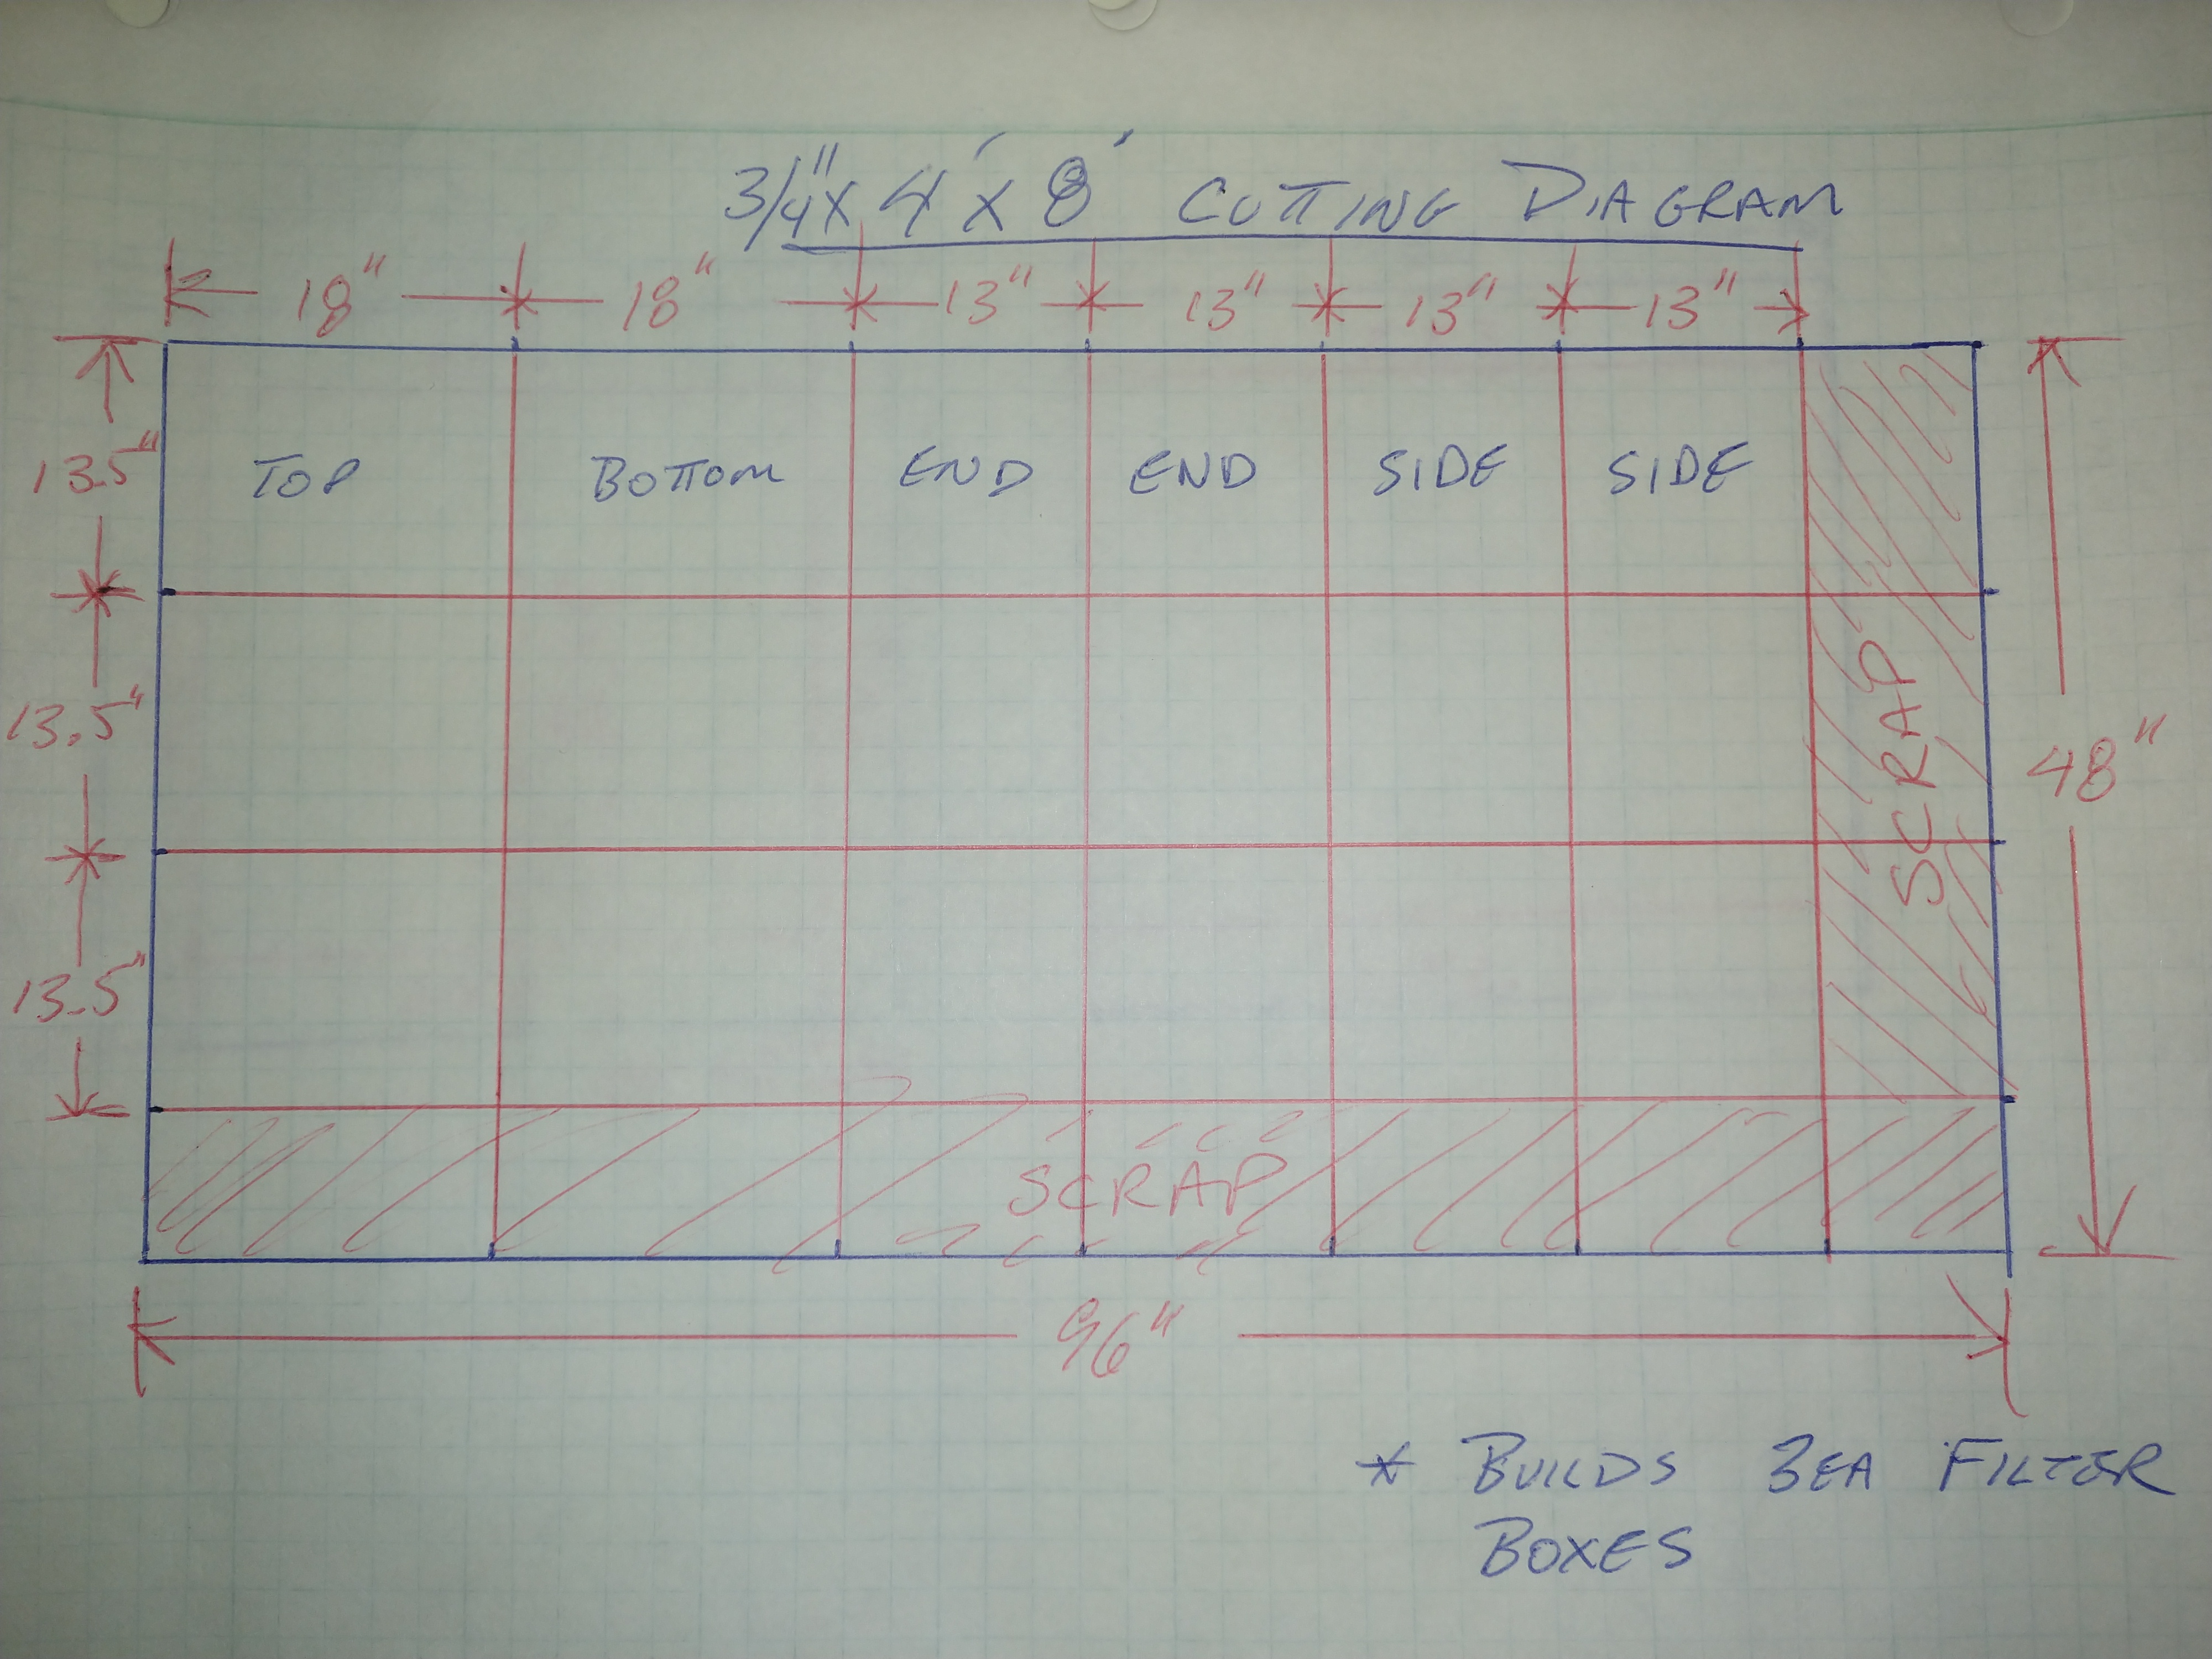 3/4" x 4' x 8' CUTTING DIAGRAM
18" 18" 13" 13" 13" 13"
13.5"
TOP BOTTOM END END SIDE SIDE
13.5"
SCRAP
48"
13.5"
SCRAP
96"
* BUILDS 3EA FILTER
BOXES